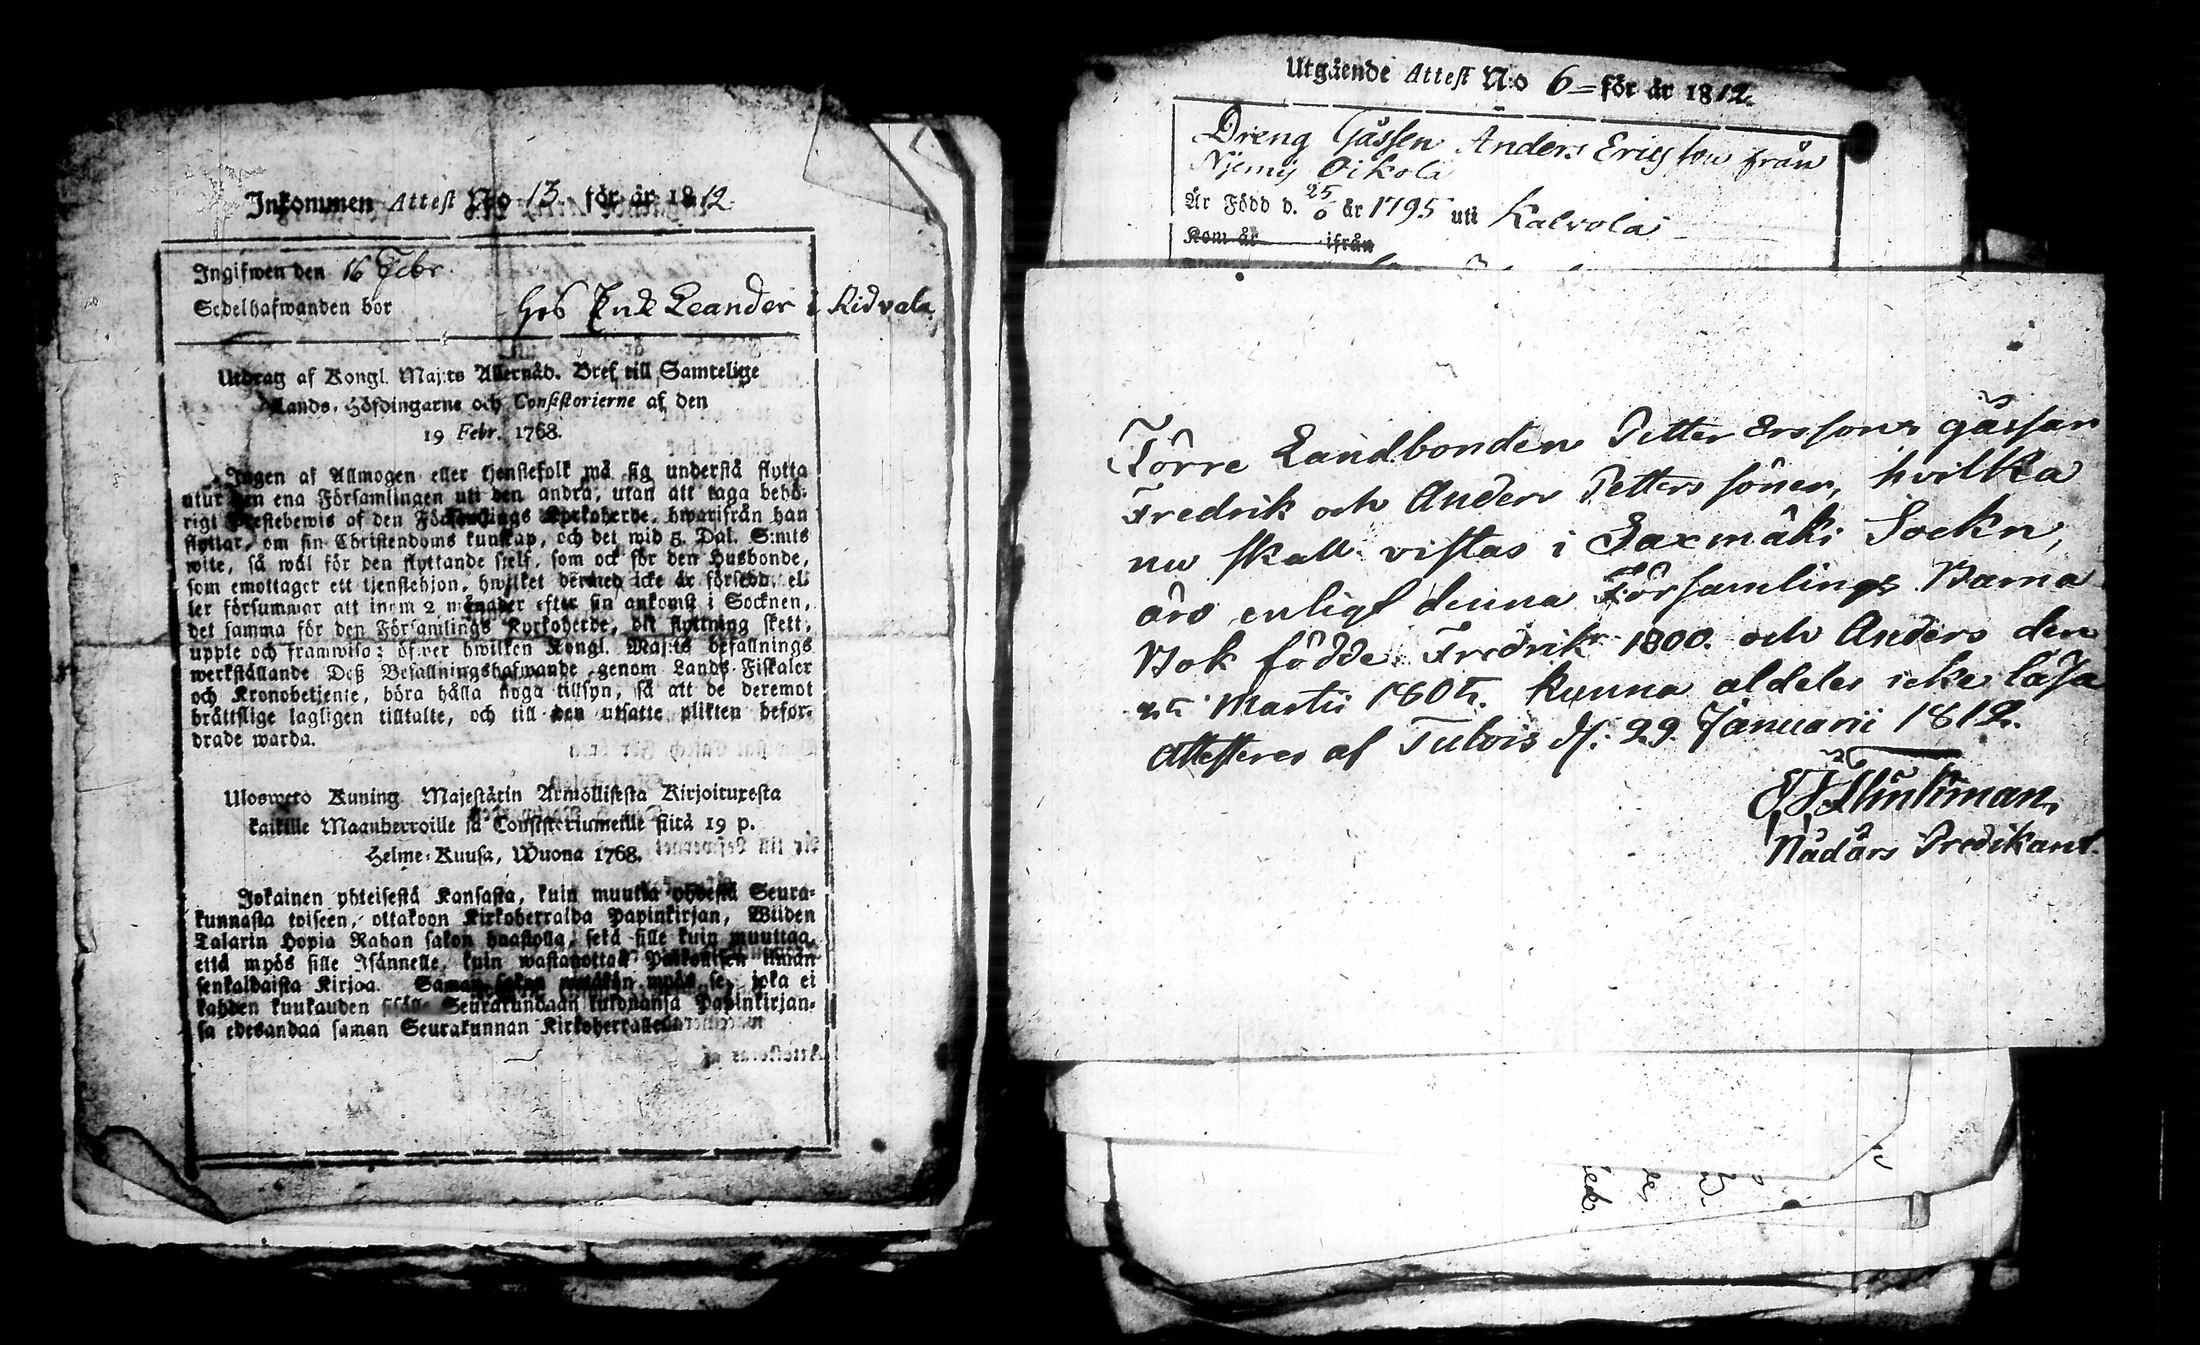 Inkommen Attest No 13. för år 1812.
Ingifwen den 16 Febr.
Sedelhafwanden bor hos Leander i Ridvala
Utdrag af Kongl. Maj:ts Allernåd. Bref till Samtelige
Lands-Höfdingarne och Consistorierne af den
19 Febr. 1768.
Ingen af Allmogen eller tjenstefolk må sig understå flytta
utur den ena Församlingen uti den andra, utan att taga behö-
rigt Prestebewis af den Församlings Kyrkoherde, hwarifrån han
flyttar, om sin Christendoms kunskap, och det wid 5 Dal. S:mts
wite, så wäl för den flyttande sjelf, som ock för den Husbonde,
som emottager ett tjenstehjon, hwilket dermed icke är försedt, el-
ler försummar att inom 2 månader efter sin ankomst i Socknen,
det samma för den Församlings Kyrkoherde, dit flyttning skett,
uppte och framwisa; öfwer hwilken Kongl. Maj:ts befallnings
werkställande Deß Befallningshafwande genom Lands-Fiskaler
och Kronobetjente, böra hålla noga tillsyn, så att de deremot
bråttslige lagligen tilltalte, och till den utsatte plikten befor-
drade warda.
Uloswero Kuning. Majestärin Armollisesta Kirjoituxesta
kaikille Maanherroille ja Consistoriumeille siitä 19 p.
Helme-Kuusa, Wuona 1768.
Jokainen yhteisestä Kansasta, kuin muutta yhdestä Seura-
kunnasta toiseen, ottakoon Kirkoherralda Papinkirjan, Wiiden
Talarin Hopia Rahan sakon haastolla, sekä sille kuin muuttaa,
että myös sille Isännelle, kuin wastanottaa Palkollisen ilman
senkaldaista Kirjaa. Saman sakon wetäkön myös se, joka ei
kahden kuukauden sisällä Seurakundaan tulduansa Papinkirjan-
sa edesandaa saman Seurakunnan Kirkoherralle.
Utgående Attest N:o 6 för år 1812.
Dreng Gåssen Anders Ericsson från
Njemij Oikola
År Född d. 25/6 år 1795 uti Kalvola
Kom år ifrån
Förre Landbonden Petter Erssons gåssar
Fredrik och Anders Petters söner, hvilka
nu skall vistas i Saxmäki Sockn,
äro enligt denna Församlings Barna
Bok födde Fredrik 1800. och Anders den
Martii 1805. kunna aldeles icke läsa
Attesteres af Tulois d: 29 Januarii 1812.
Nådårs Predikant.